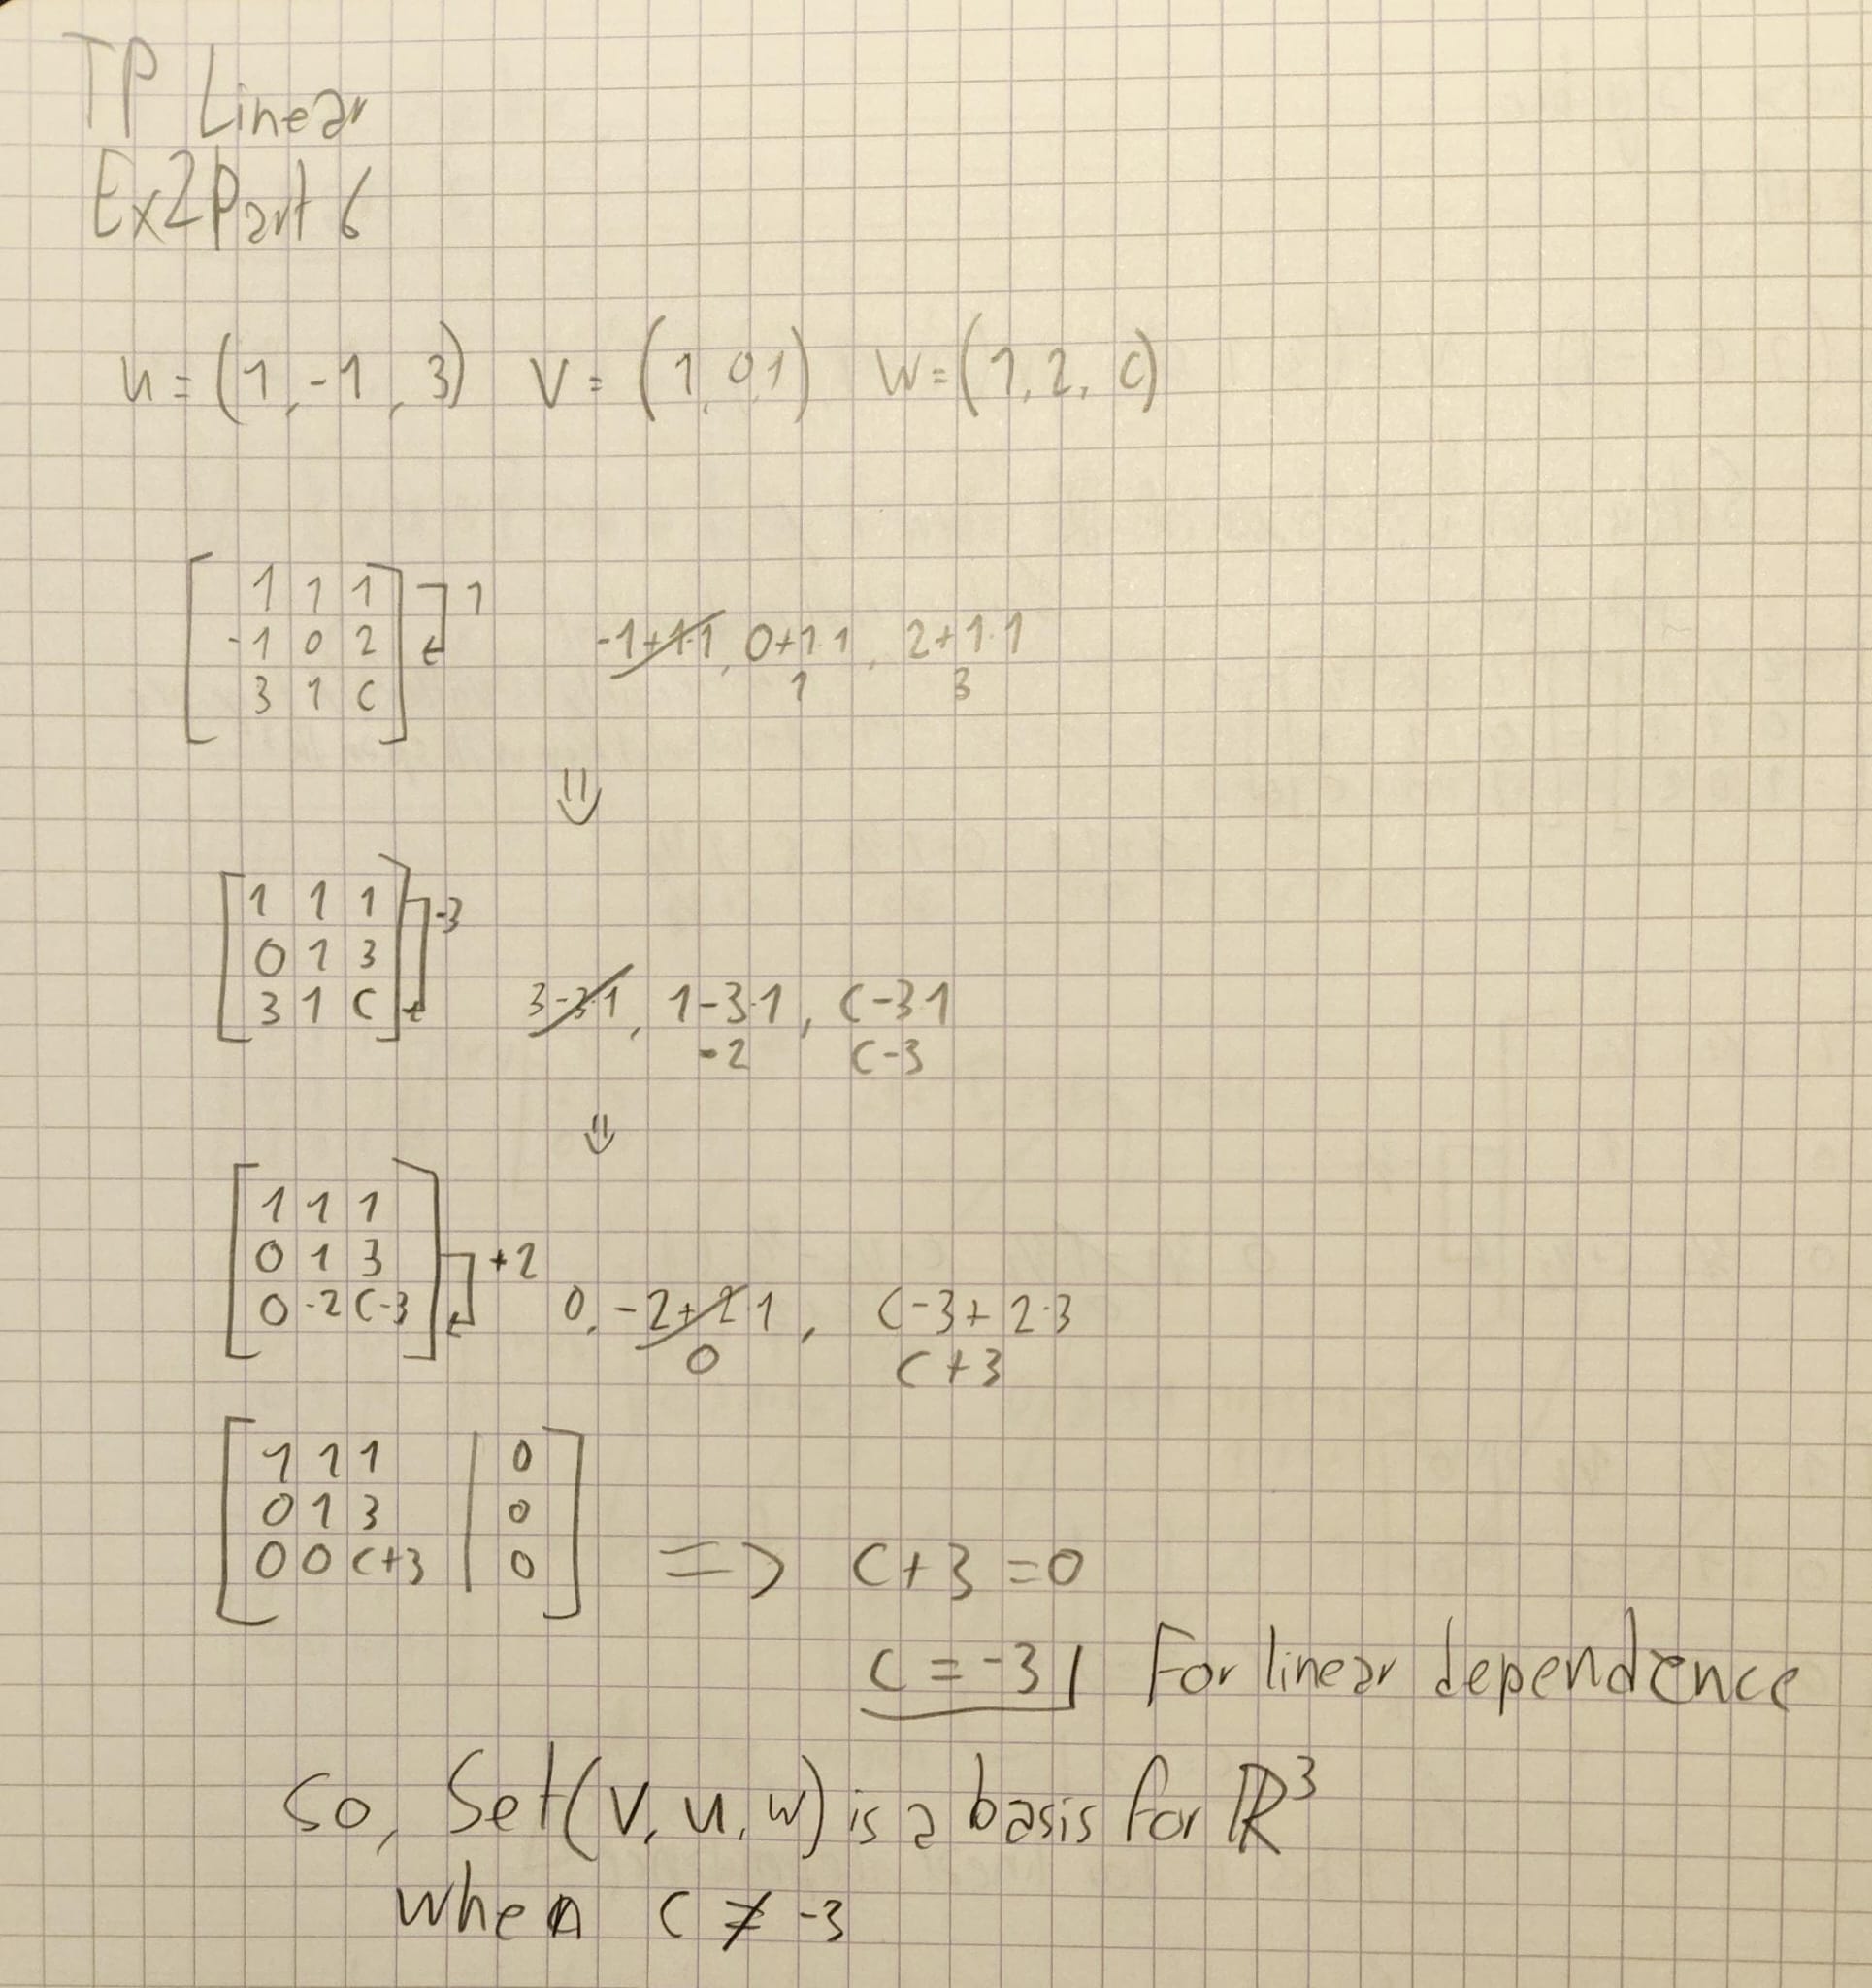 TP Linear
Ex2Part 6
u = (1, -1, 3) v = (1, 0, 1) w = (1, 2, c)
1 1 1 1
-1 0 2 -1+1·1, 0+1·1, 2+1·1
3 1 c 1 3
⇓
1 1 1 -3
0 1 3
3 1 c 3-3·1, 1-3·1, c-3·1
-2 c-3
⇓
1 1 1
0 1 3 +2
0 -2 c-3 0, -2+2·1, c-3+2·3
0 c+3
1 1 1 | 0
0 1 3 | 0
0 0 c+3 | 0 => c+3=0
c = -3 For linear dependence
So, Set(v, u, w) is a basis for ℝ³
when c ≠ -3